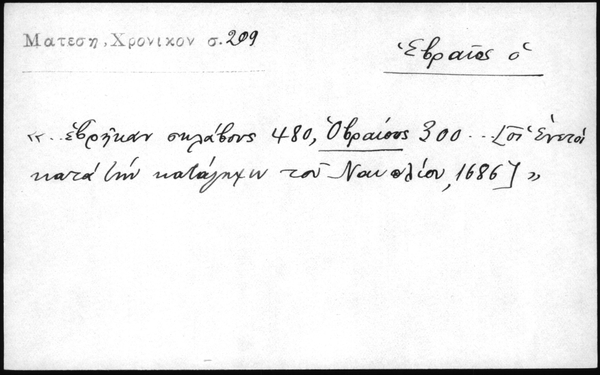 Ματεση, Χρονικον σ. 209
Ἑβραῖος ὁ
«..ἐβρῆκαν σκλάβους 480, Ὀβραίους 300...[οἱ Ἑνετοὶ
κατὰ τὴν κατάληψιν τοῦ Ναυπλίου, 1686]»